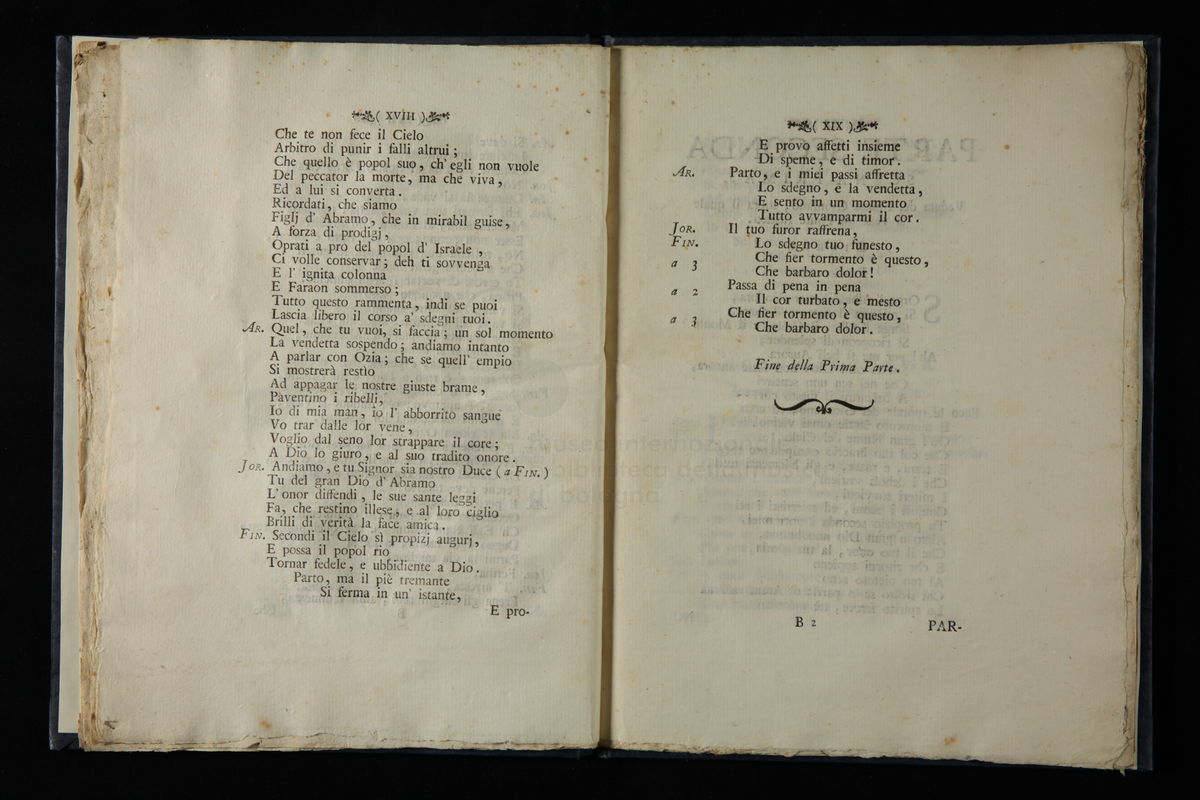 ( XVIII )
Che te non fece il Cielo
Arbitro di punir i falli altrui ;
Che quello è popol suo , ch' egli non vuole
Del peccator la morte , ma che viva ,
Ed a lui si converta .
Ricordati , che siamo
Figlj d' Abramo , che in mirabil guise ,
A forza di prodigj ,
Oprati a pro del popol d' Israele ,
Ci volle conservar ; deh ti sovvenga
E l' ignita colonna
E Faraon sommerso ;
Tutto questo rammenta , indi se puoi
Lascia libero il corso a' sdegni tuoi .
AR. Quel , che tu vuoi , si faccia ; un sol momento
La vendetta sospendo ; andiamo intanto
A parlar con Ozia ; che se quell' empio
Si mostrerà restìo
Ad appagar le nostre giuste brame ,
Paventino i ribelli ,
Io di mia man , io l' abborrito sangue
Vo trar dalle lor vene ,
Voglio dal seno lor strappare il core ;
A Dio lo giuro , e al suo tradito onore .
JOR. Andiamo , e tu Signor sia nostro Duce ( a FIN. )
Tu del gran Dio d' Abramo
L' onor diffendi , le sue sante leggi
Fa , che restino illese , e al loro ciglio
Brilli di verità la face amica .
FIN. Secondi il Cielo sì propizj augurj ,
E possa il popol rio
Tornar fedele , e ubbidiente a Dio .
Parto , ma il piè tremante
Si ferma in un' istante ,
E pro-
( XIX )
E provo affetti insieme
Di speme , e di timor .
AR. Parto , e i miei passi affretta
Lo sdegno , e la vendetta ,
E sento in un momento
Tutto avvamparmi il cor .
JOR. Il tuo furor raffrena ,
FIN. Lo sdegno tuo funesto ,
a 3 Che fier tormento è questo ,
Che barbaro dolor !
a 2 Passa di pena in pena
Il cor turbato , e mesto
a 3 Che fier tormento è questo ,
Che barbaro dolor .
Fine della Prima Parte .
B 2
PAR-